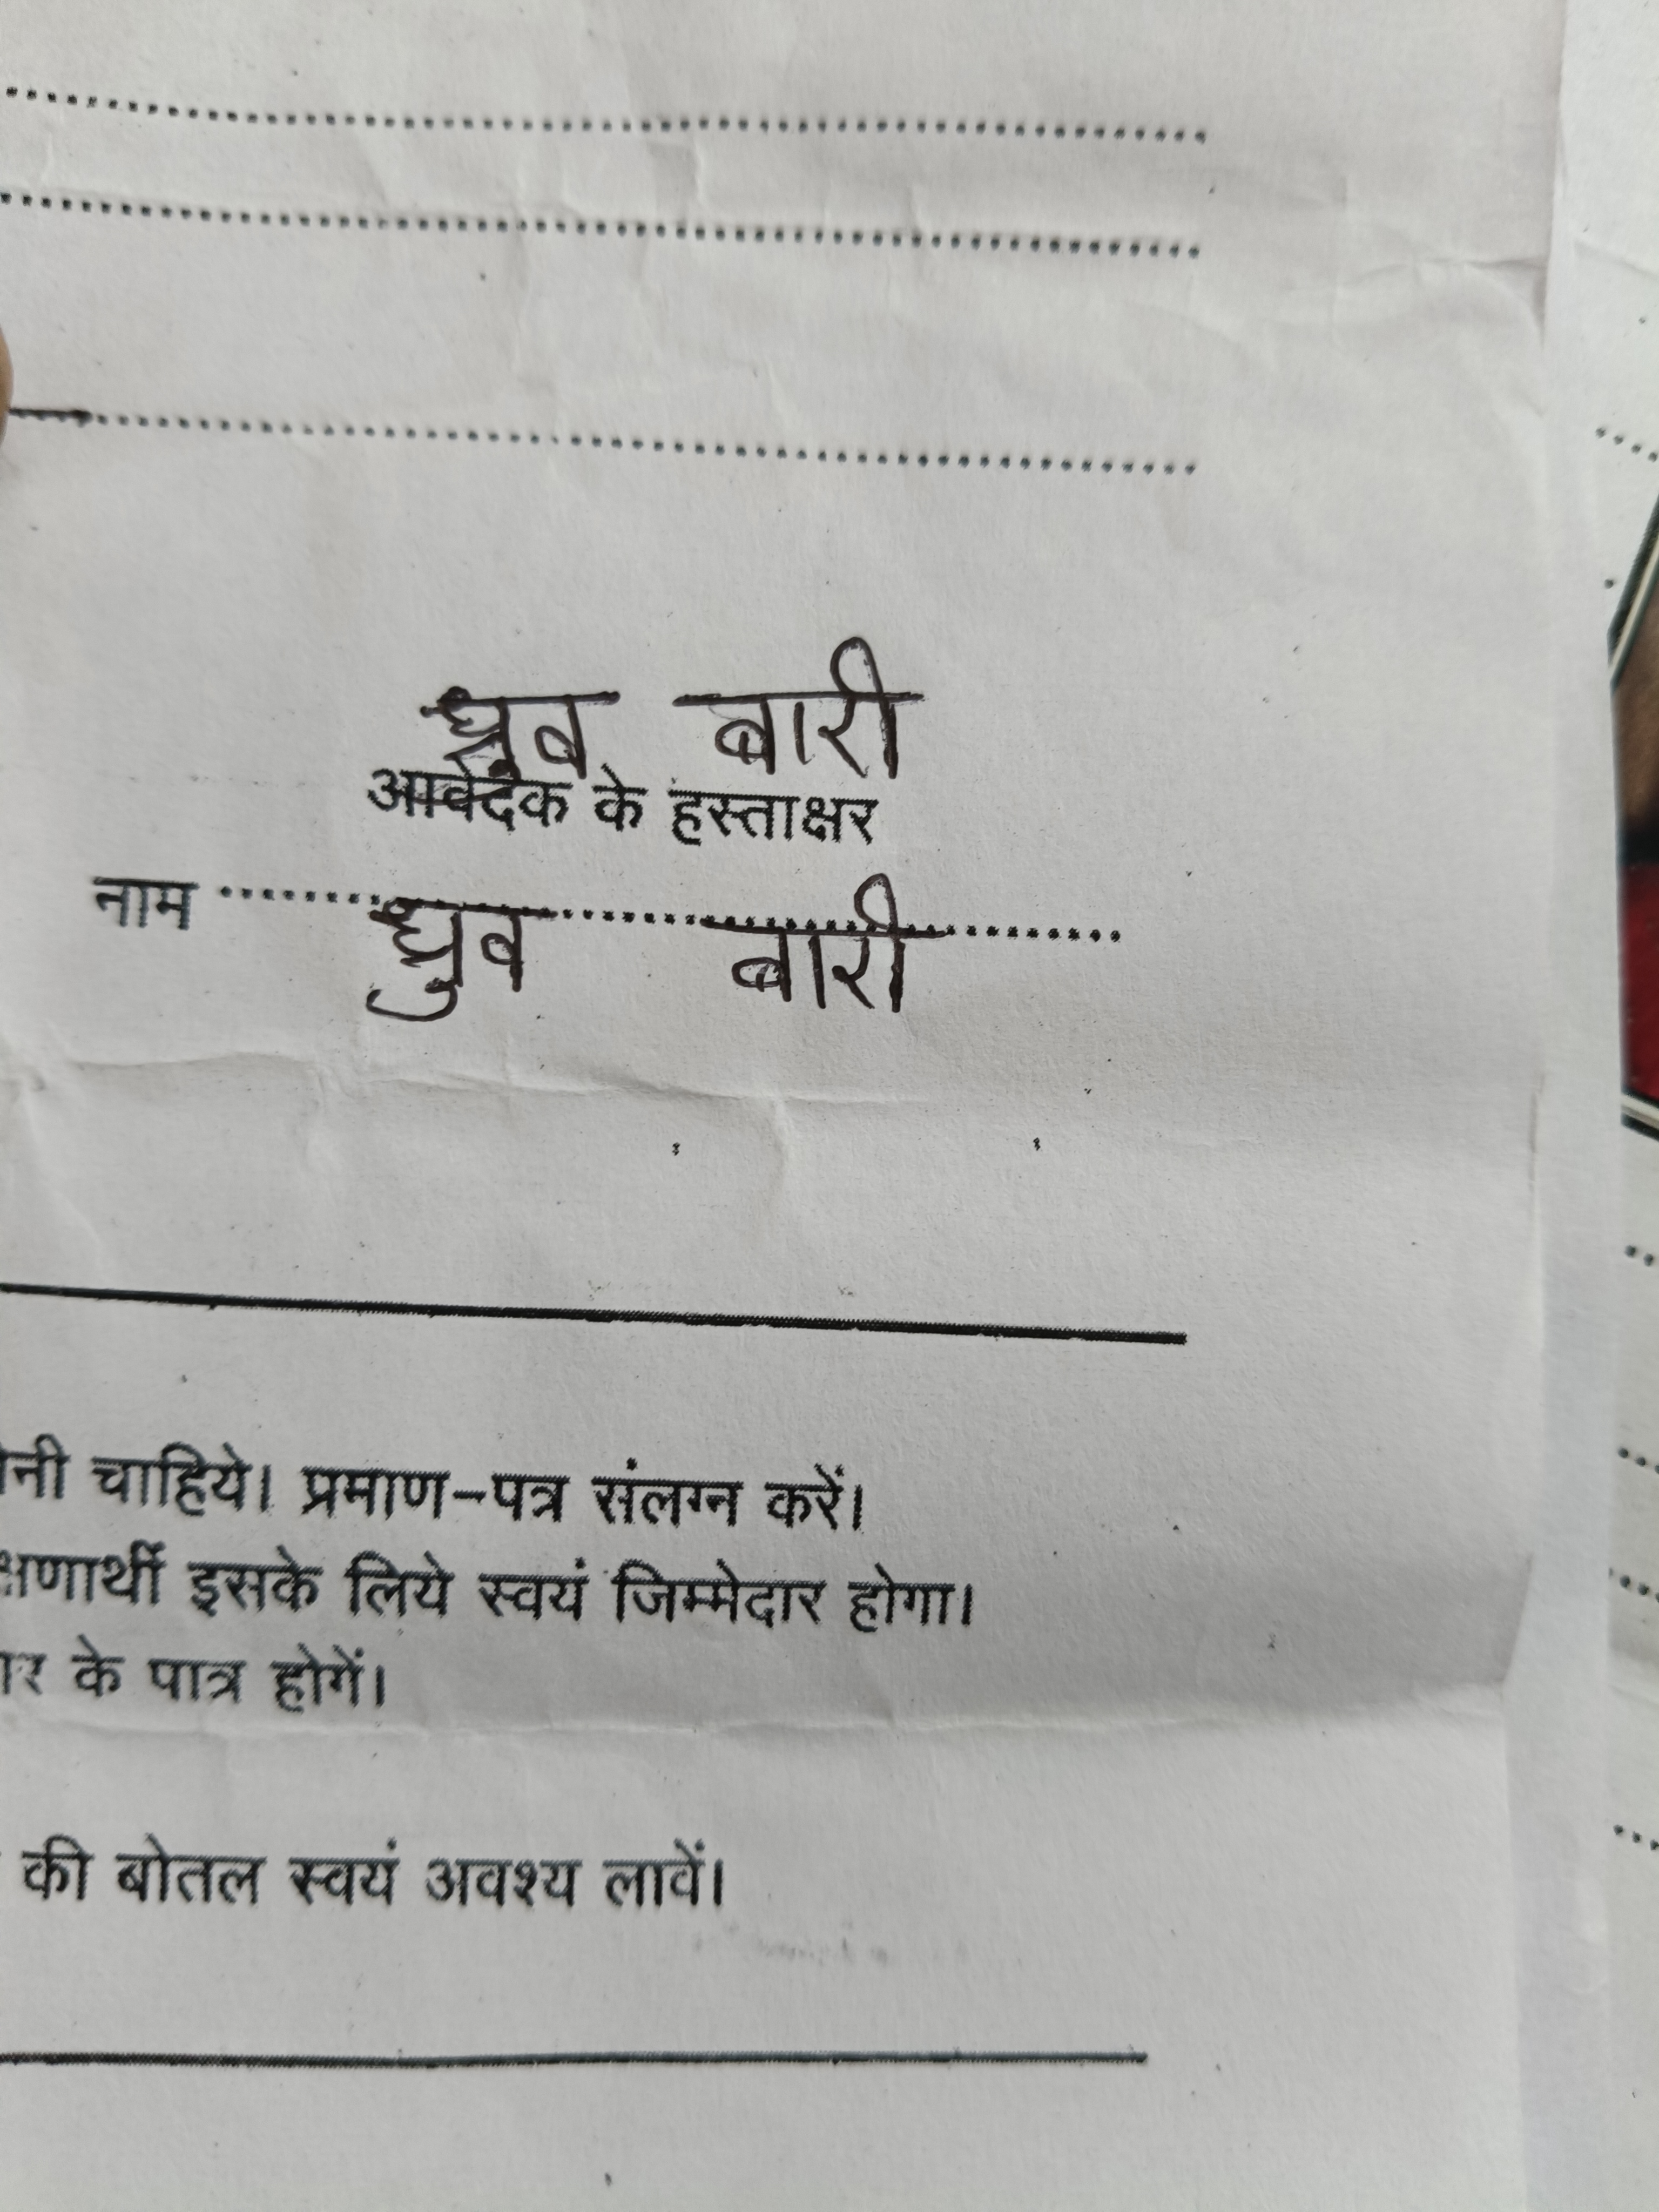 ध्रुव बारी
आवेदक के हस्ताक्षर
नाम ध्रुव बारी
चाहिये। प्रमाण-पत्र संलग्न करें।
इसके लिये स्वयं जिम्मेदार होगा।
के पात्र होगें।
की बोतल स्वयं अवश्य लावें।